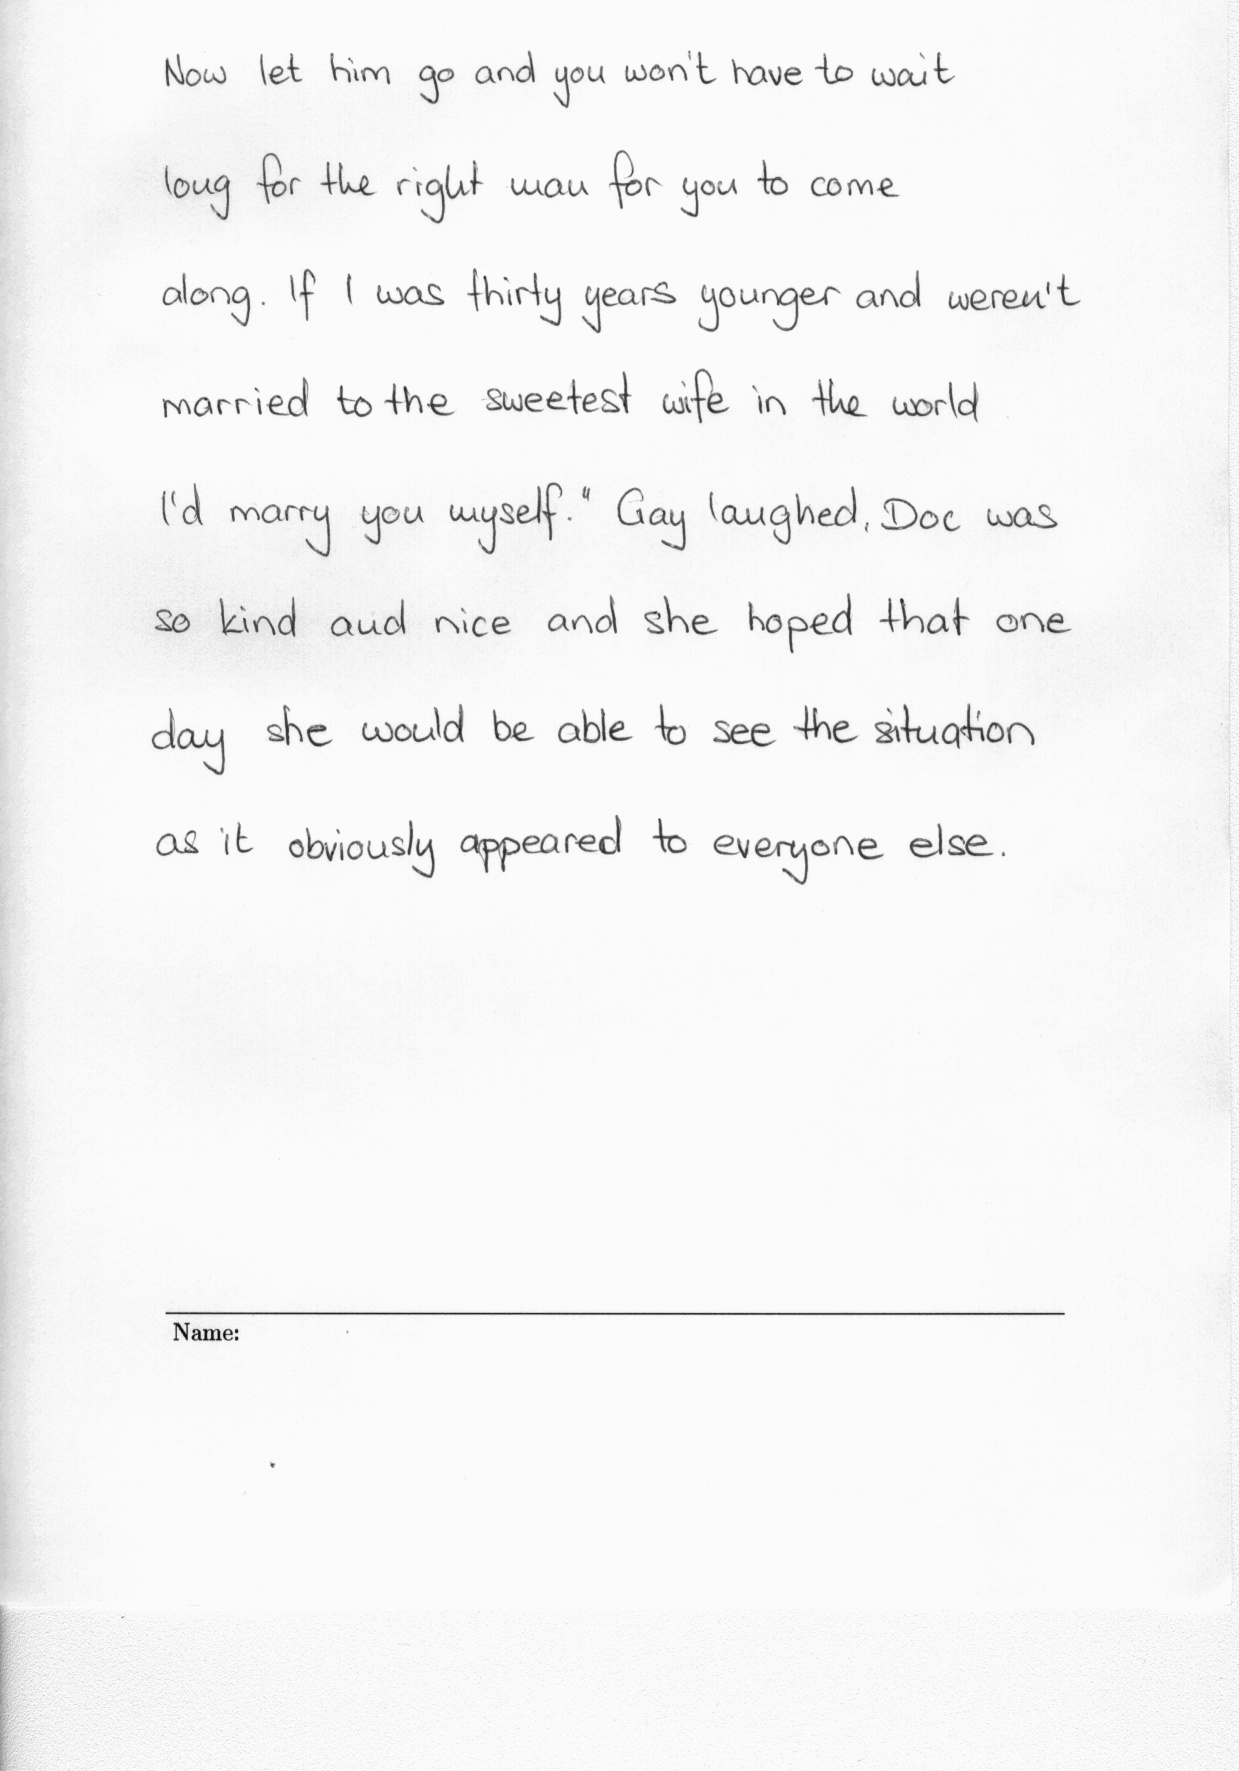 Now let him go and you won't have to wait
long for the right man for you to come
along. If I was thirty years younger and weren't
married to the sweetest wife in the world
I'd marry you myself." Gay laughed, Doc was
so kind and nice and she hoped that one
day she would be able to see the situation
as it obviously appeared to everyone else.
Name: